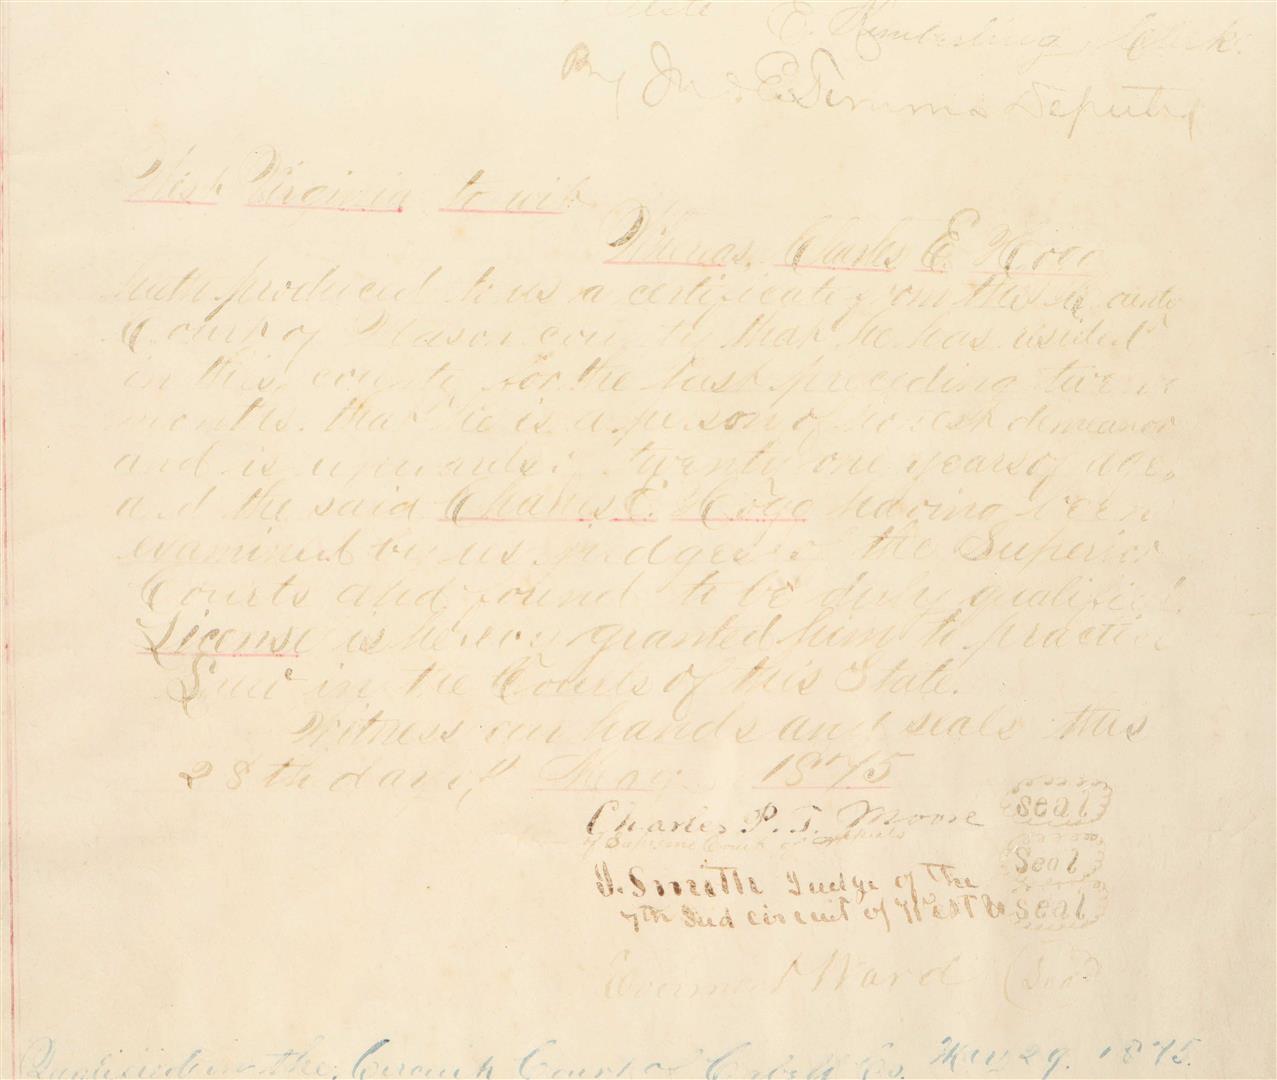 Teste E. Kimberling, Clerk.
By Jno. E. Timms Deputy
West Virginia to wit
Whereas, Charles E. Hogg
hath produced to us a certificate from the County
Court of Mason county that he has resided
in this county for the last preceding twelve
months. that he is a person of honest demeanor
and is upwards of twenty one years of age,
and the said Charles E. Hogg having been
examined by us judges of the Superior
Courts and found to be duly qualified.
License is hereby granted him to practice
Law in the Courts of this State.
Witness our hands and seals this
28th day of May 1875
Charles P. T. Moore seal
of Supreme Court of Appeals Seal
J. Smith Judge of the
7th Jud circuit of West Va seal
Evermont Ward (Seal)
Qualified in the Circuit Court of Cabell Co. May 29. 1875.